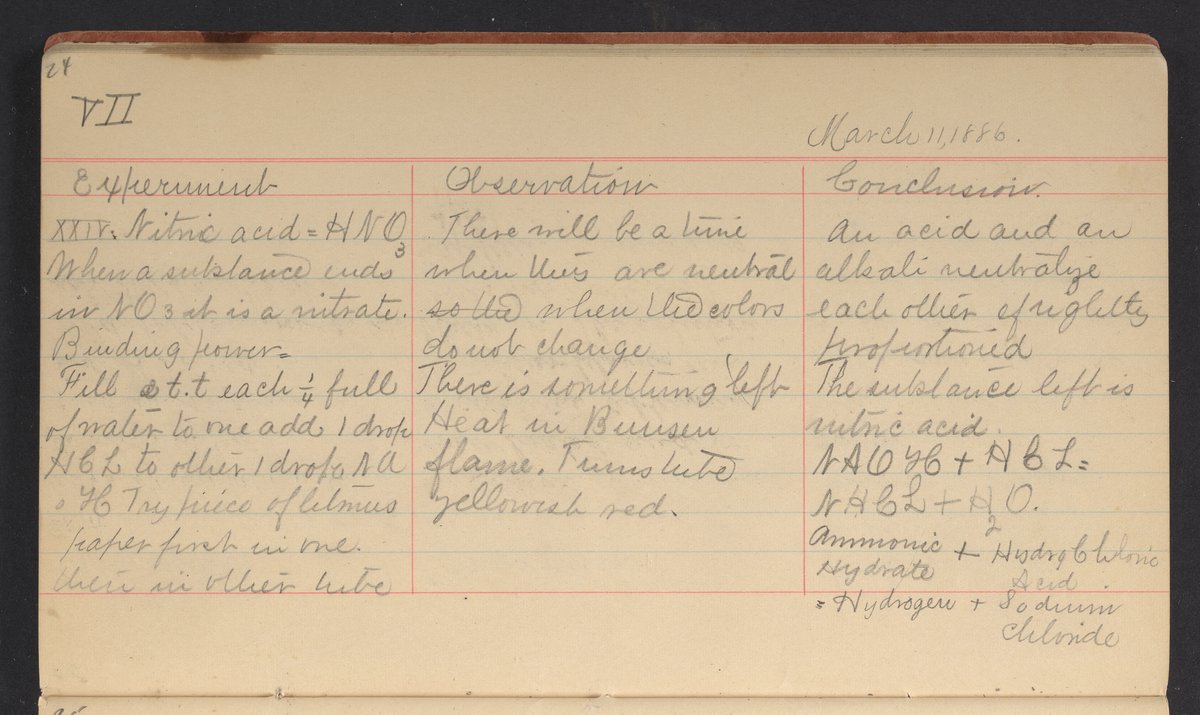 24
VII
March 11, 1886.
Experiment
XXIV. Nitric acid = HNO3
When a substance ends
in NO3 it is a nitrate.
Binding power=
Fill 2 t.t each 1/4 full
of water to one add 1 drop
HCL to other 1 drop NA
OH Try piece of litmus
paper first in one.
then in other tube
Observation
There will be a time
when this are neutral
so the when the colors
do not change
There is something left
Heat in Bunsen
flame. Turns tube
yellowish red.
Conclusion.
An acid and an
alkali neutralize
each other if rightly
proportioned
The substance left is
nitric acid.
NAOH + HCL=
NHCL + H2O.
Ammonic Hydrate + HydroChloric Acid
= Hydrogen + Sodium
Chloride